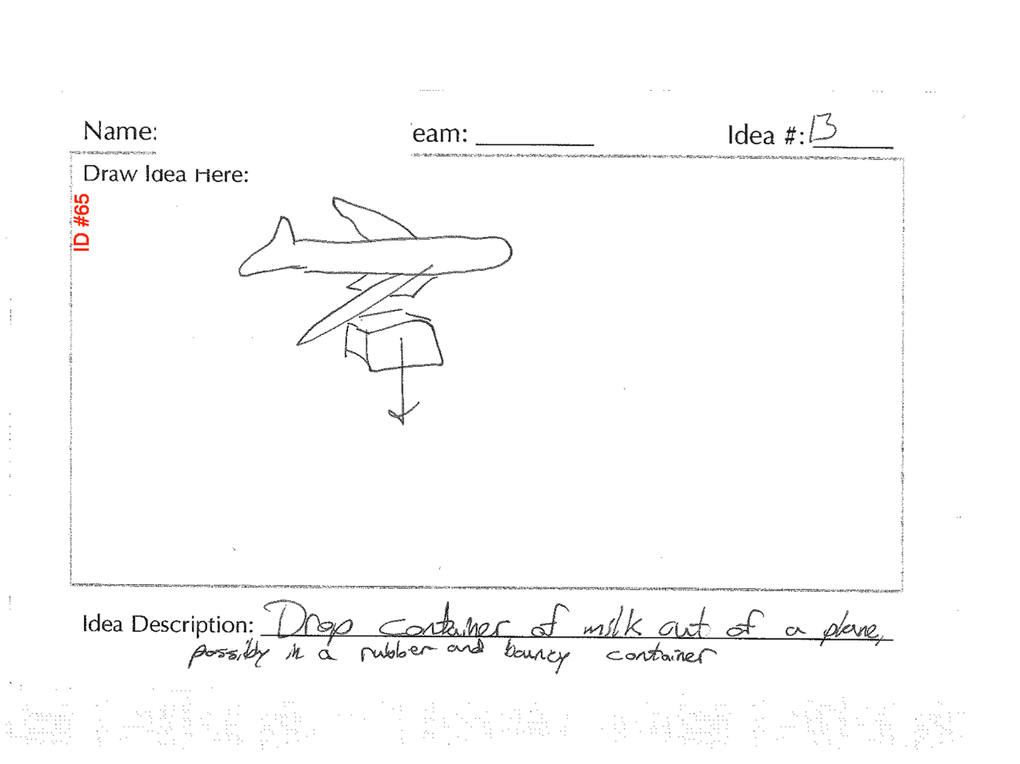 Name:
eam:
Idea #: 13
Draw Idea Here:
ID #65
Idea Description: Drop container of milk out of a plane,
possibly in a rubber and bouncy container